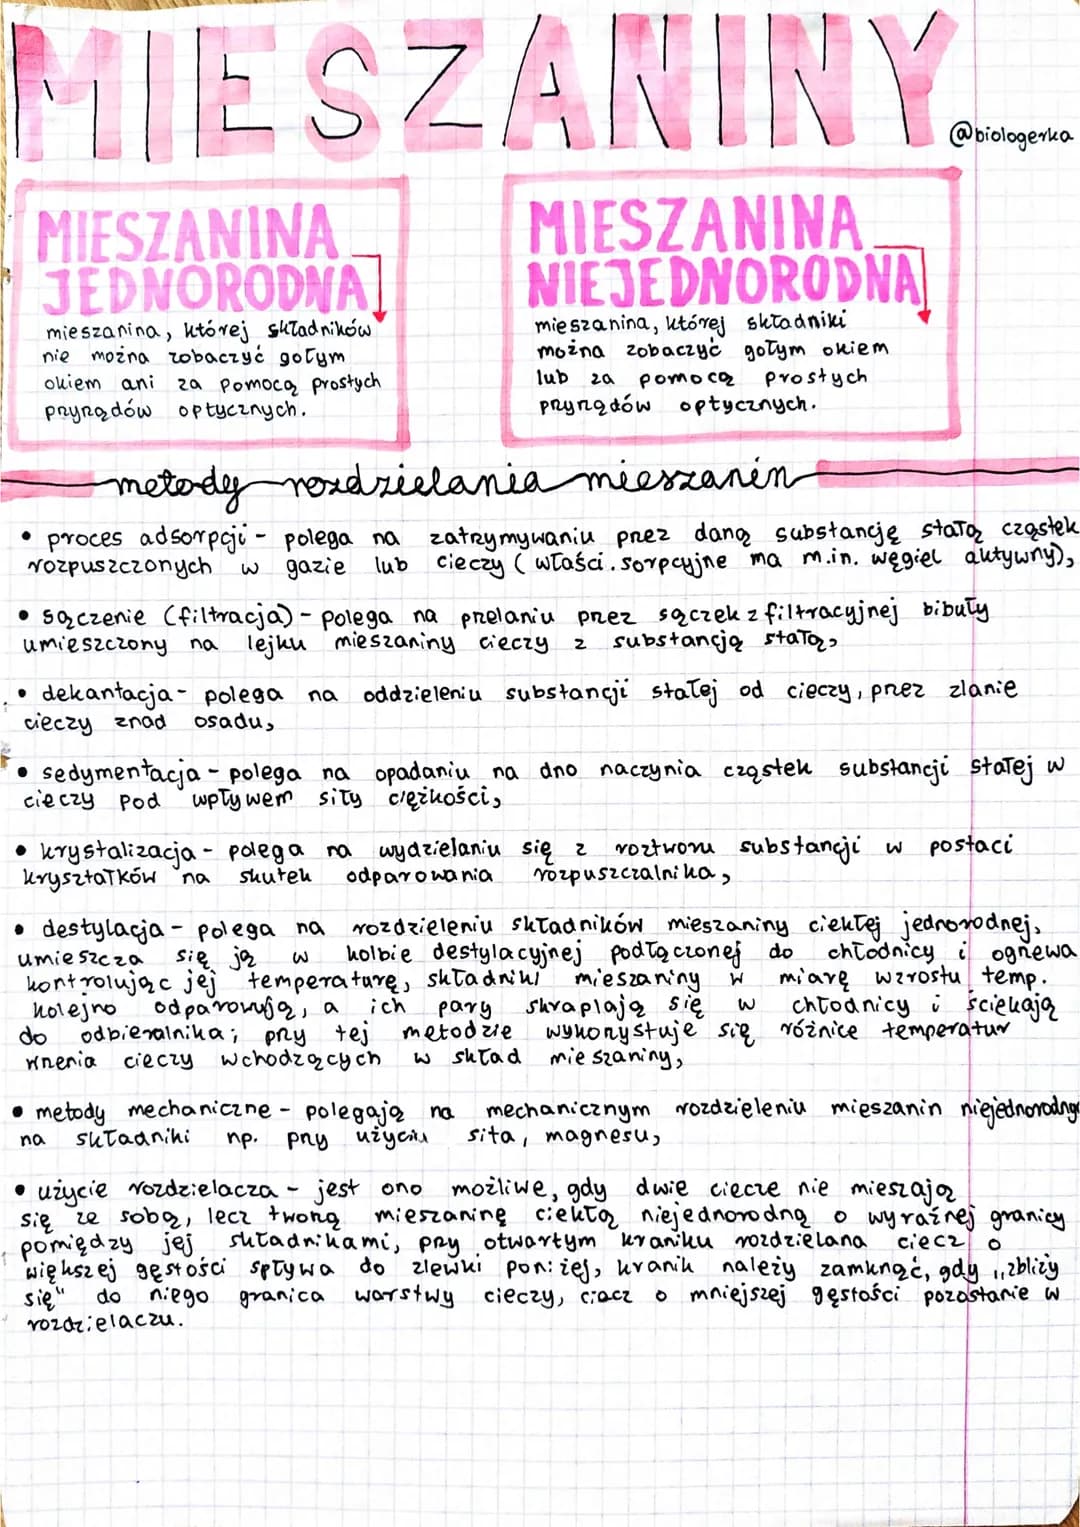 MIESZANINY
@biologerka
MIESZANINA
JEDNORODNA
mieszanina, której składników
nie można zobaczyć gołym
okiem ani za pomocą prostych
przyrządów optycznych.
MIESZANINA
NIEJEDNORODNA
mieszanina, której składniki
można zobaczyć gołym okiem
lub za pomocą prostych
przyrządów optycznych.
metody rozdzielania mieszanin
• proces adsorpcji - polega na zatrzymywaniu przez daną substancję stałą cząstek
rozpuszczonych w gazie lub cieczy (właści. sorpcyjne ma m.in. węgiel aktywny),
• sączenie (filtracja) - polega na przelaniu przez sączek z filtracyjnej bibuły
umieszczony na lejku mieszaniny cieczy z substancją stałą,
• dekantacja - polega na oddzieleniu substancji stałej od cieczy, przez zlanie
cieczy znad osadu,
• sedymentacja - polega na opadaniu na dno naczynia cząstek substancji stałej w
cieczy pod wpływem siły ciężkości,
• krystalizacja - polega na wydzielaniu się z roztworu substancji w postaci
kryształków na skutek odparowania rozpuszczalnika,
• destylacja - polega na rozdzieleniu składników mieszaniny ciekłej jednorodnej,
umieszcza się ją w kolbie destylacyjnej podłączonej do chłodnicy i ogrzewa
kontrolując jej temperaturę, składniki mieszaniny w miarę wzrostu temp.
kolejno odparowują, a ich pary skraplają się w chłodnicy i ściekają
do odbieralnika; przy tej metodzie wykorzystuje się różnice temperatur
wrzenia cieczy wchodzących w skład mieszaniny,
• metody mechaniczne - polegają na mechanicznym rozdzieleniu mieszanin niejednorodnych
na składniki np. przy użyciu sita, magnesu,
• użycie rozdzielacza - jest ono możliwe, gdy dwie ciecze nie mieszają
się ze sobą, lecz tworzą mieszaninę ciekłą niejednorodną o wyraźnej granicy
pomiędzy jej składnikami, przy otwartym kraniku rozdzielana ciecz o
większej gęstości spływa do zlewki poniżej, kranik należy zamknąć, gdy „zbliży
się" do niego granica warstwy cieczy, ciecz o mniejszej gęstości pozostanie w
rozdzielaczu.